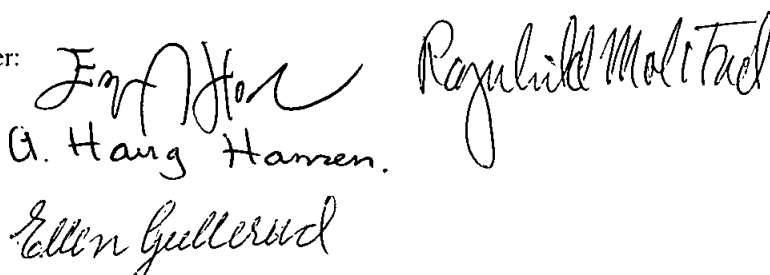 er:
Ragnhild Molstad
A. Haug Hansen.
Ellen Gullerud